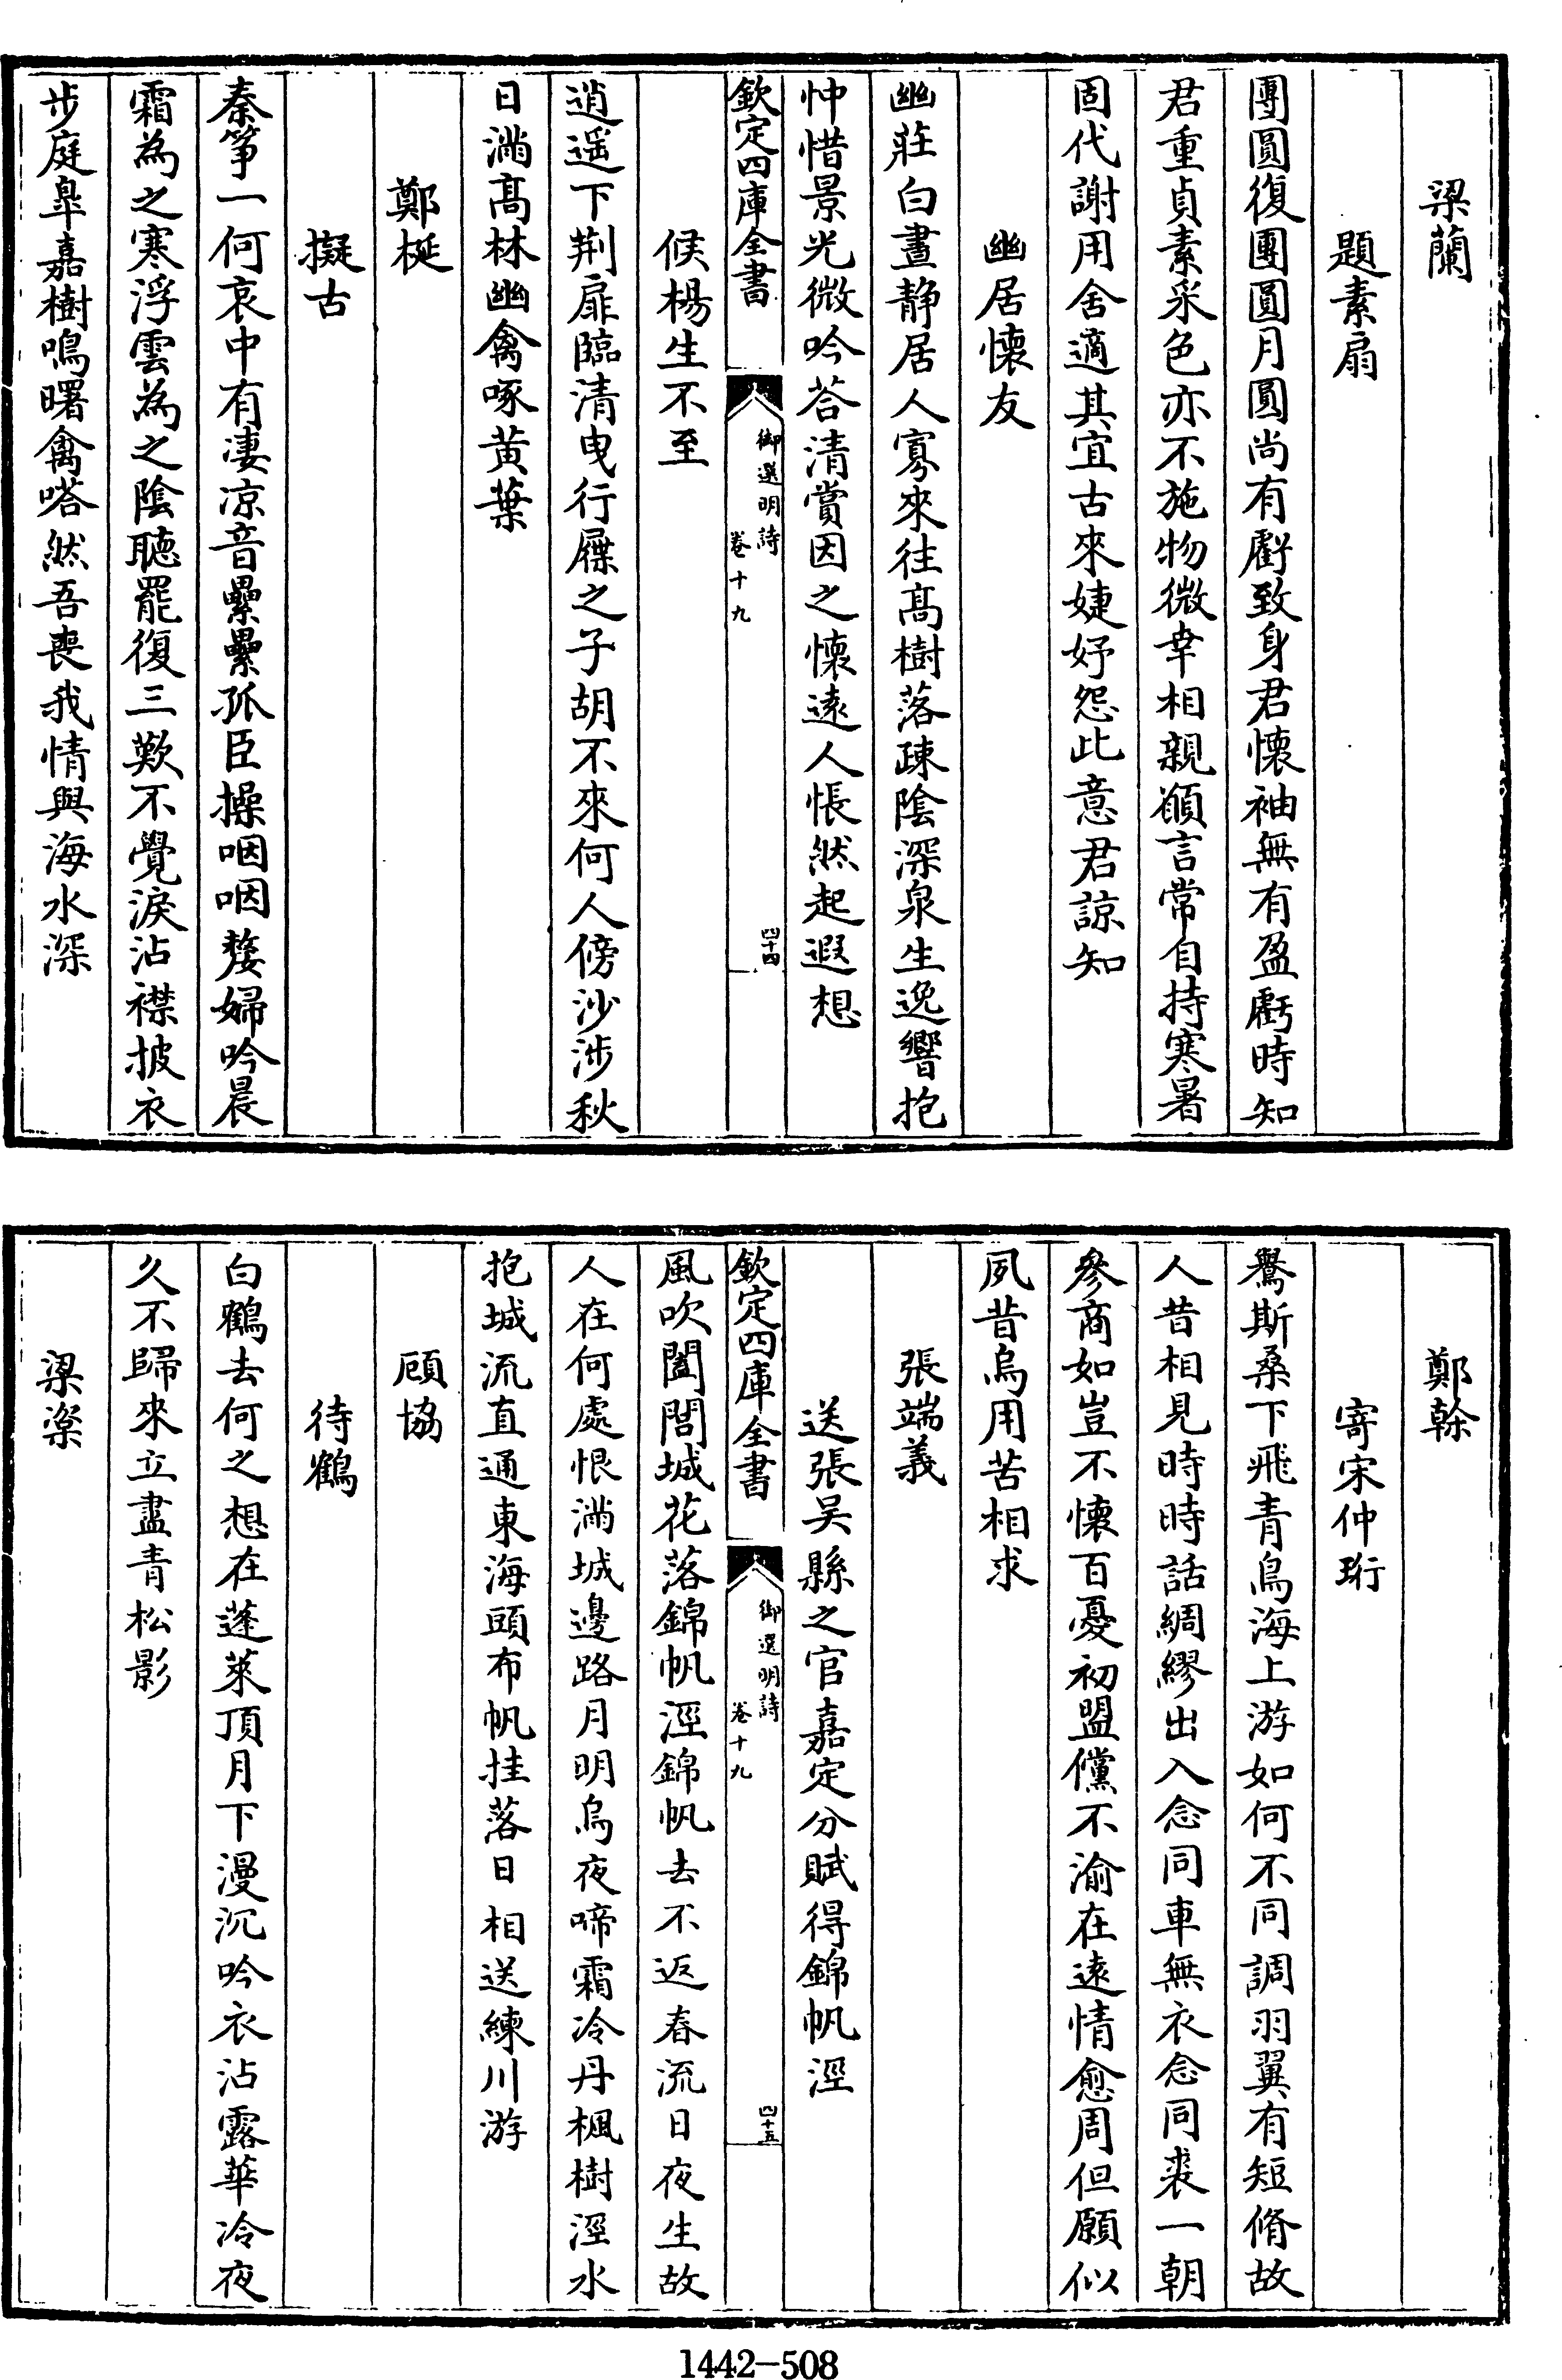 梁蘭
題素扇
團圓復團圓月圓尚有虧致身君懷袖無有盈虧時知
君重貞素采色亦不施物微幸相親願言常自持寒暑
固代謝用舍適其宜古來婕妤怨此意君諒知
幽居懷友
幽莊白晝静居人寡來往髙樹落疎陰深泉生逸響抱
忡惜景光微吟荅清賞因之懷遠人悵然起遐想
欽定四庫全書
御選明詩
卷十九
四十四
候楊生不至
逍遥下荆扉臨清曳行屧之子胡不來何人傍沙涉秋
日滿髙林幽禽啄黄葉
鄭梴
擬古
秦筝一何哀中有淒凉音纍纍孤臣操咽咽嫠婦吟晨
霜為之寒浮雲為之陰聴罷復三歎不覺淚沾襟披衣
步庭臯嘉樹鳴曙禽嗒然吾喪我情與海水深
鄭榦
寄宋仲珩
鸒斯桑下飛青鳥海上游如何不同調羽翼有短脩故
人昔相見時時話綢繆出入念同車無衣念同裘一朝
參商如豈不懷百憂初盟儻不渝在遠情愈周但願似
夙昔烏用苦相求
張端義
送張吴縣之官嘉定分賦得錦帆涇
欽定四庫全書
御選明詩
卷十九
四十五
風吹闔閭城花落錦帆涇錦帆去不返春流日夜生故
人在何處恨滿城邊路月明烏夜啼霜冷丹楓樹涇水
抱城流直通東海頭布帆挂落日相送練川游
顧協
待鶴
白鶴去何之想在蓬萊頂月下漫沉吟衣沾露華冷夜
久不歸來立盡青松影
梁㴝
1442-508